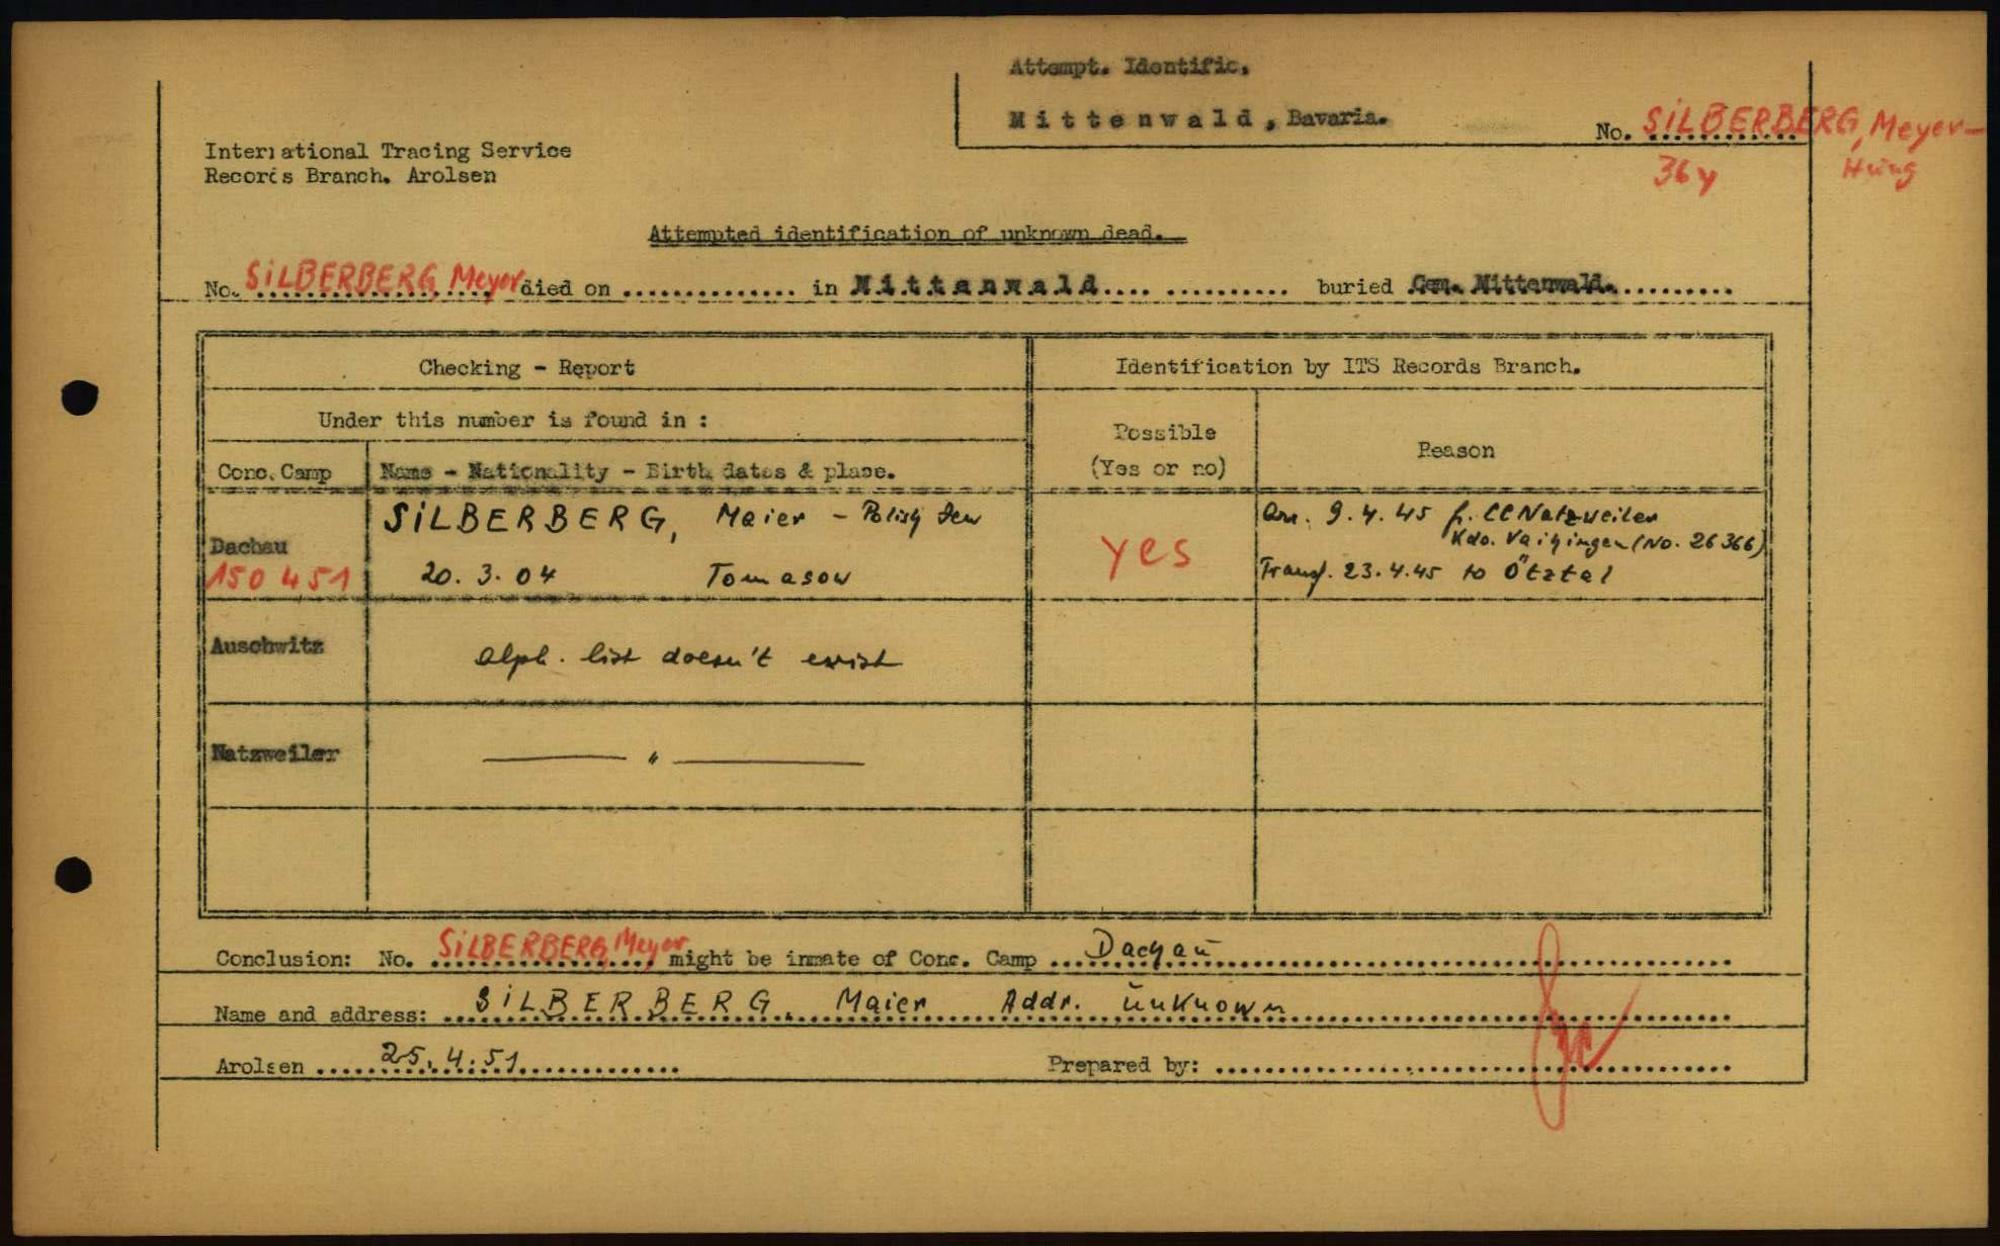 Attempt. Identific.
Mittenwald, Bavaria.
No. SiLBERBERG, Meyer-
36y
International Tracing Service
Records Branch. Arolsen
Attempted identification of unknown dead.
No. SiLBERBERG, Meyer died on .............. in Mittenwald.... .......... buried Cem. Mittenwald..........
Checking - Report
Identification by ITS Records Branch.
Under this number is found in :
Possible
(Yes or no)
Reason
Conc. Camp
Name - Nationality - Birth dates & place.
Dachau
150 451
SiLBERBERG, Maier - Polish Jew
20. 3. 04 Tomasow
yes
Arr. 9.4.45 fr. CC Natzweiler
Kdo. Vaihingen (No. 26366)
Transf. 23.4.45 to Ötztal
Auschwitz
Alph. list doesn't exist
Natzweiler
———— " ————
Conclusion: No. SiLBERBERG, Meyer might be inmate of Conc. Camp Dachau
Name and address: SiLBERBERG, Maier Addr. unknown
Arolsen 25.4.51
Prepared by: